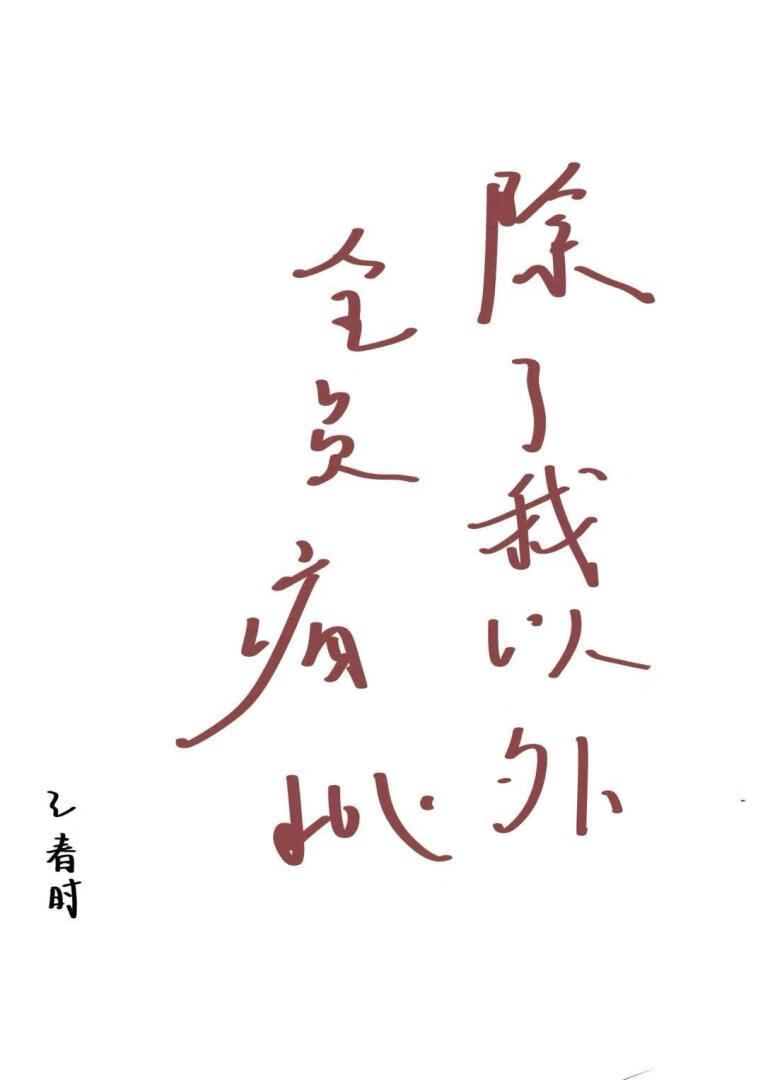 除了我以外
全员病批
王春时